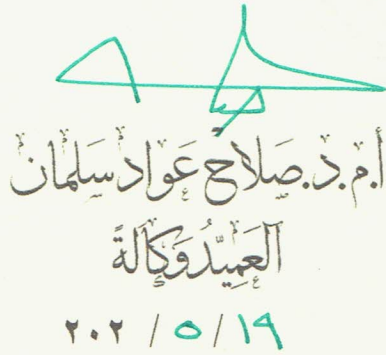 أ.م.د.صلاح عواد سلمان
العميد وكالة
١٩ / ٥ / ٢٠٢